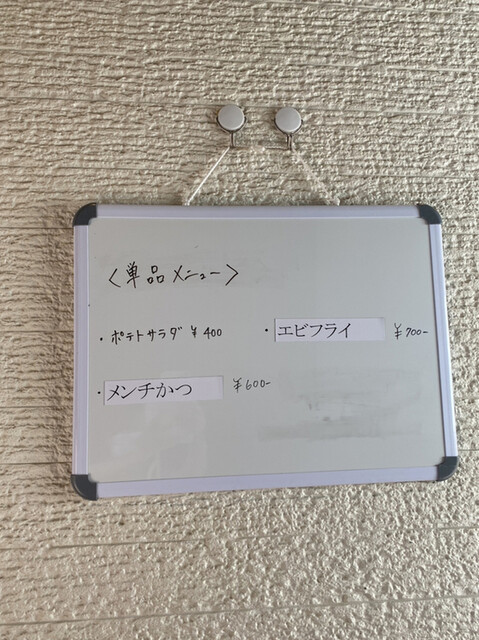 〈単品メニュー〉
・ポテトサラダ ¥400
・エビフライ ¥700-
・メンチかつ ¥600-